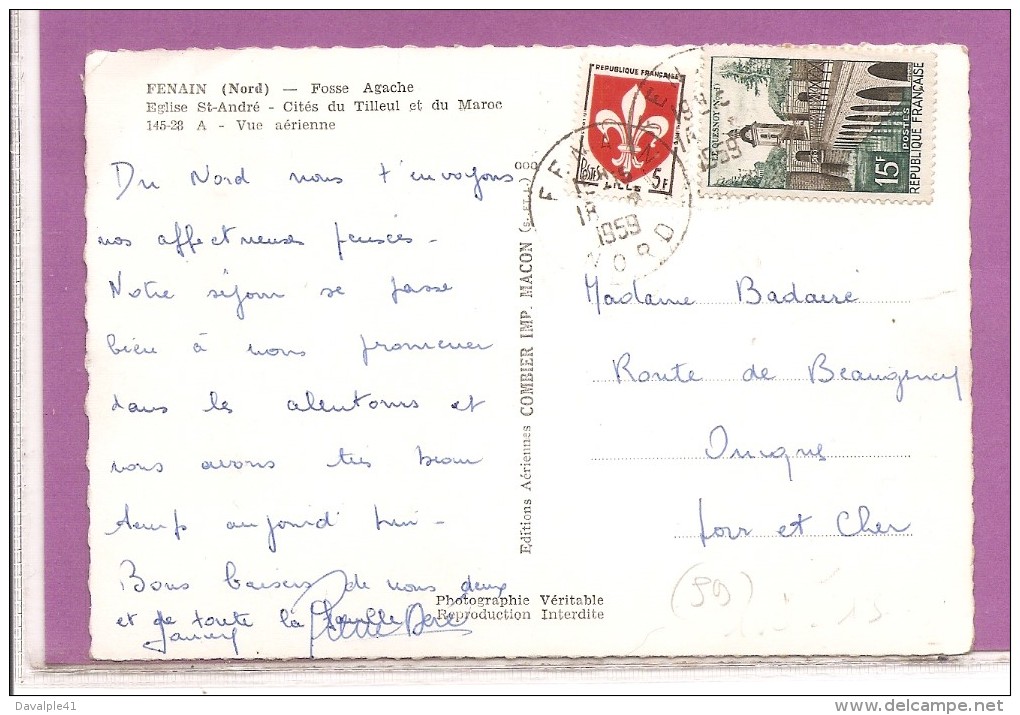 FENAIN (Nord) — Fosse Agache
Eglise St-André - Cités du Tilleul et du Maroc
145-28 A - Vue aérienne
Du Nord nous t'envoyons
nos affectueuses pensées -
Notre séjour se passe
bien à nous promener
dans les alentours et
nous avons très beau
temps aujourd'hui -
Bons baisers de nous deux
et de toute la famille
Editions Aériennes COMBIER IMP. MACON (S.-ET-L.)
Photographie Véritable
Reproduction Interdite
REPUBLIQUE FRANÇAISE
POSTES
LILLE
5F
LE QUESNOY (NORD)
15F
POSTES
REPUBLIQUE FRANÇAISE
FENAIN
1959
NORD
1959
Madame Badaire
Route de Beaugency
Oucques
Loir et Cher
(59)
Davalple41
delcampe.net